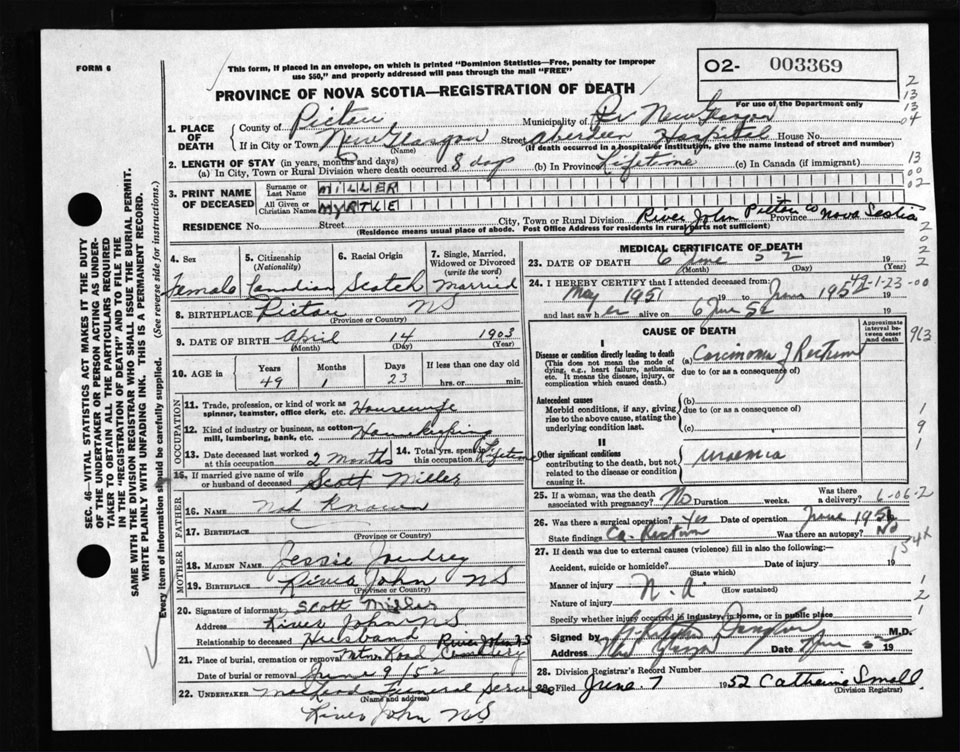 FORM 6
This form, if placed in an envelope, on which is printed "Dominion Statistics—Free, penalty for improper
use $50," and properly addressed will pass through the mail "FREE"
O2- 003369
For use of the Department only
2
13
13
04
PROVINCE OF NOVA SCOTIA—REGISTRATION OF DEATH
1. PLACE OF DEATH
County of Pictou Municipality of New Glasgow
If in City or Town New Glasgow Street Aberdeen Hospital House No.
(Name) (If death occurred in a hospital or institution, give the name instead of street and number)
2. LENGTH OF STAY (in years, months and days)
(a) In City, Town or Rural Division where death occurred 8 days (b) In Province Lifetime (c) In Canada (if immigrant)
13
00
02
3. PRINT NAME OF DECEASED
Surname or Last Name MILLER
All Given or Christian Names MYRTLE
RESIDENCE No. Street City, Town or Rural Division River John Pictou Co Province Nova Scotia
(Residence means usual place of abode. Post Office Address for residents in rural parts not sufficient)
2
0
2
2
4. Sex Female
5. Citizenship (Nationality) Canadian
6. Racial Origin Scotch
7. Single, Married, Widowed or Divorced (write the word) Married
8. BIRTHPLACE Pictou NS
(Province or Country)
9. DATE OF BIRTH April 14 1903
(Month) (Day) (Year)
10. AGE in Years Months Days If less than one day old
49 1 23 hrs. or min.
OCCUPATION
11. Trade, profession, or kind of work as spinner, teamster, office clerk, etc. Housewife
12. Kind of industry or business, as cotton mill, lumbering, bank, etc. Homekeeping
13. Date deceased last worked at this occupation 2 Months
14. Total yrs. spent in this occupation Lifetime
15. If married give name of wife or husband of deceased Scott Miller
FATHER
16. Name Not Known
17. Birthplace
(Province or Country)
MOTHER
18. Maiden Name Jessie Joudrey
19. Birthplace River John NS
(Province or Country)
20. Signature of informant Scott Miller
Address River John NS
Relationship to deceased Husband River John NS
21. Place of burial, cremation or removal Road Cemetery
Date of burial or removal June 9/52
22. UNDERTAKER Funeral Service
(Name and address)
River John NS
MEDICAL CERTIFICATE OF DEATH
23. DATE OF DEATH 6 June 52 19
(Month) (Day) (Year)
24. I HEREBY CERTIFY that I attended deceased from:
May 1951 19 to June 1952 42-1-23-00
and last saw her alive on 6 June 52 19
CAUSE OF DEATH
Approximate interval between onset and death
913
I
Disease or condition directly leading to death
(This does not mean the mode of dying, e.g., heart failure, asthenia, etc. It means the disease, injury, or complication which caused death.)
(a) Carcinoma of Rectum
due to (or as a consequence of)
Antecedent causes
Morbid conditions, if any, giving rise to the above cause, stating the underlying condition last.
(b)
due to (or as a consequence of)
(c)
1
9
II
Other significant conditions
contributing to the death, but not related to the disease or condition causing it.
uraemia
25. If a woman, was the death associated with pregnancy? No Duration weeks. Was there a delivery? 6-06-2
26. Was there a surgical operation? Yes Date of operation June 1951
State findings Ca. Rectum Was there an autopsy? No
154X
27. If death was due to external causes (violence) fill in also the following:—
Accident, suicide or homicide? Date of injury 19
(State which)
Manner of injury N.A.
(How sustained)
Nature of injury
Specify whether injury occurred in industry, in home, or in public place
1
2
1
Signed by M.D.
Address New Glasgow Date 19
28. Division Registrar's Record Number
Filed June 7 1952 Catherine Small
(Division Registrar)
SEC. 46—VITAL STATISTICS ACT MAKES IT THE DUTY
OF THE UNDERTAKER OR PERSON ACTING AS UNDER-
TAKER TO OBTAIN ALL THE PARTICULARS REQUIRED
IN THE "REGISTRATION OF DEATH" AND TO FILE THE
SAME WITH THE DIVISION REGISTRAR WHO SHALL ISSUE THE BURIAL PERMIT.
WRITE PLAINLY WITH UNFADING INK. THIS IS A PERMANENT RECORD.
Every item of information should be carefully supplied. (See reverse side for instructions.)